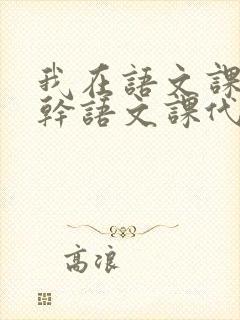 我在語文課
幹語文課代
高浪